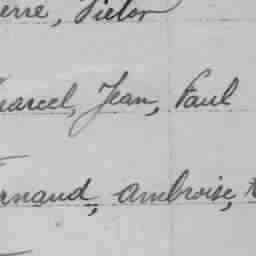 erre, Victor
Marcel, Jean, Paul
rnaud, Ambroise,